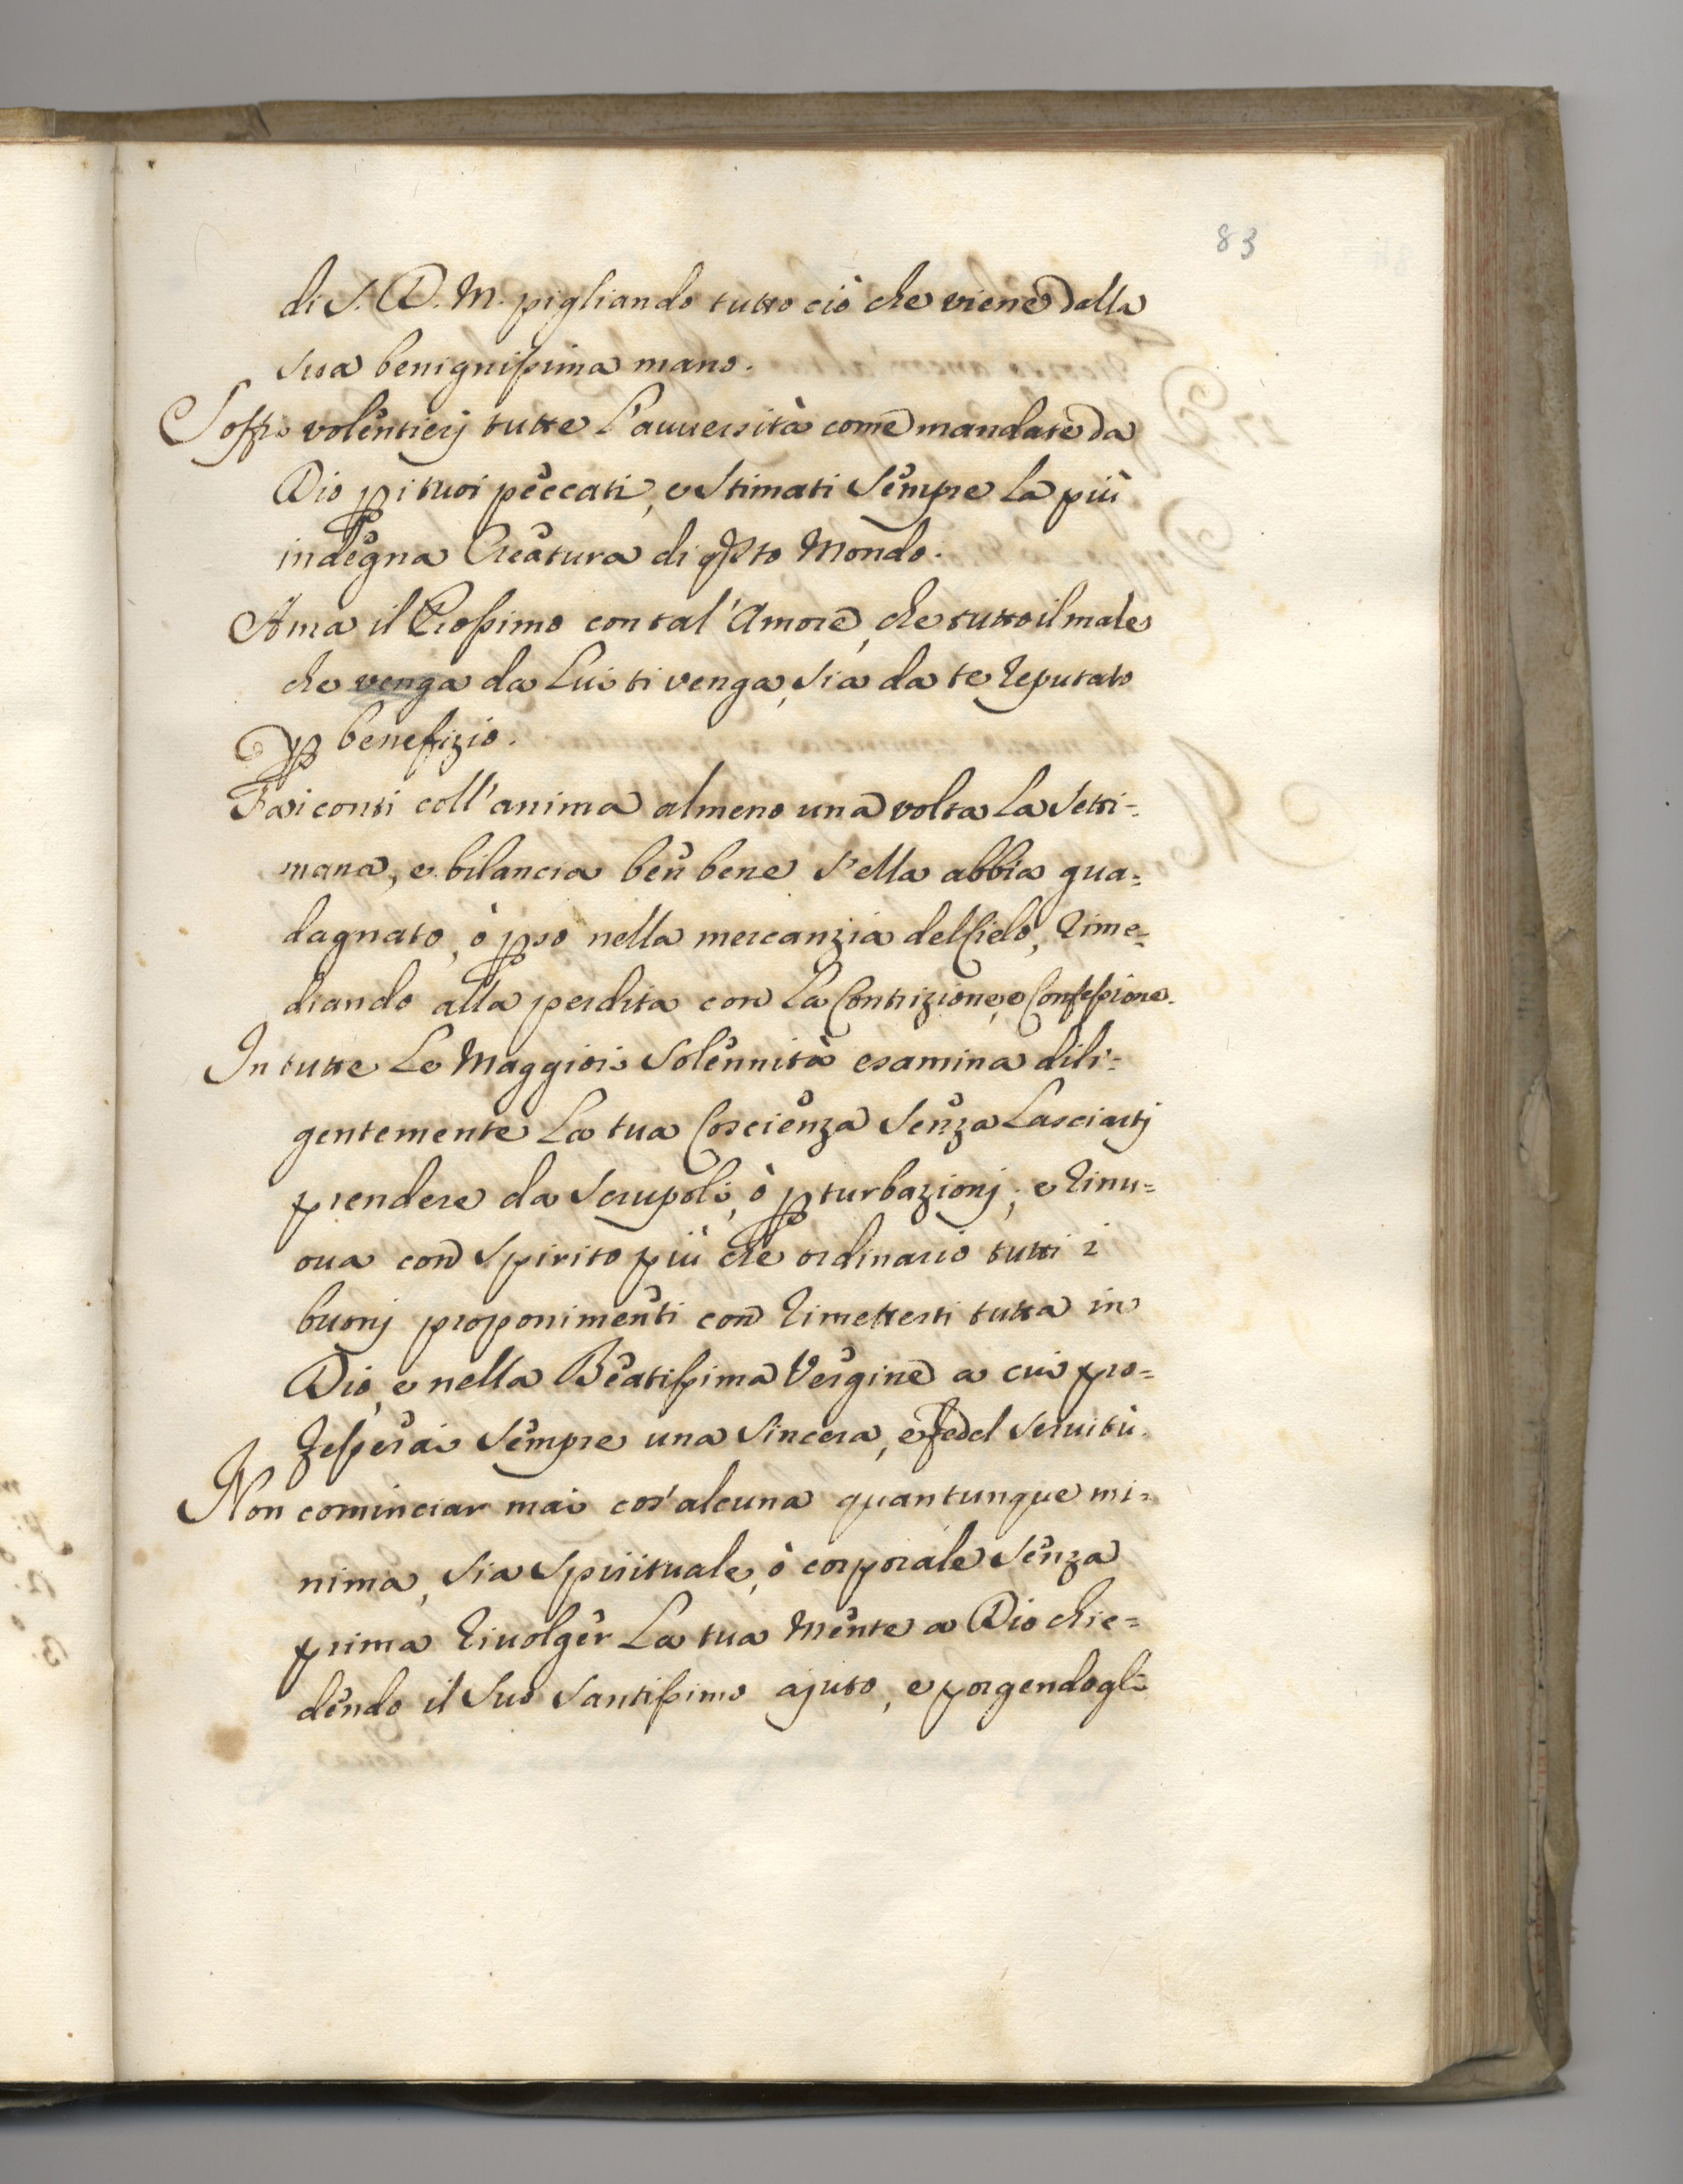 83
di S. D. M. pigliando tutto ciò che viene dalla
sua benignissima mano.
Soffri volentierj tutte l'auuersità come mandate da
Dio p i tuoi peccati, e stimati sempre la più
indegna Creatura di qsto Mondo.
Ama il Prossimo con tal' Amore, che tutto il male
che venga da Lui ti venga, sia da te reputato
p benefizio.
Fa i conti coll'anima almeno una volta la setti=
mana, e bilancia ben bene s'ella abbia gua=
dagnato, ò pso nella mercanzia del Cielo, rime=
diando alla perdita con la Contrizione, e Confessione.
In tutte le Maggiori solennità esamina dili=
gentemente la tua Coscienza senza lasciartj
prendere da scrupoli, ò pturbazionj; e rinu=
oua con spirito più che ordinario tutti i
buonj proponimenti con rimetterti tutta in
Dio, e nella Beatissima Vergine a cui pro=
fesserai sempre una sincera, e fedel seruitù.
Non cominciar mai cos'alcuna quantunque mi=
nima, sia spirituale, ò corporale senza
prima riuolger la tua mente a Dio chie=
dendo il suo santissimo ajuto, e porgendogli